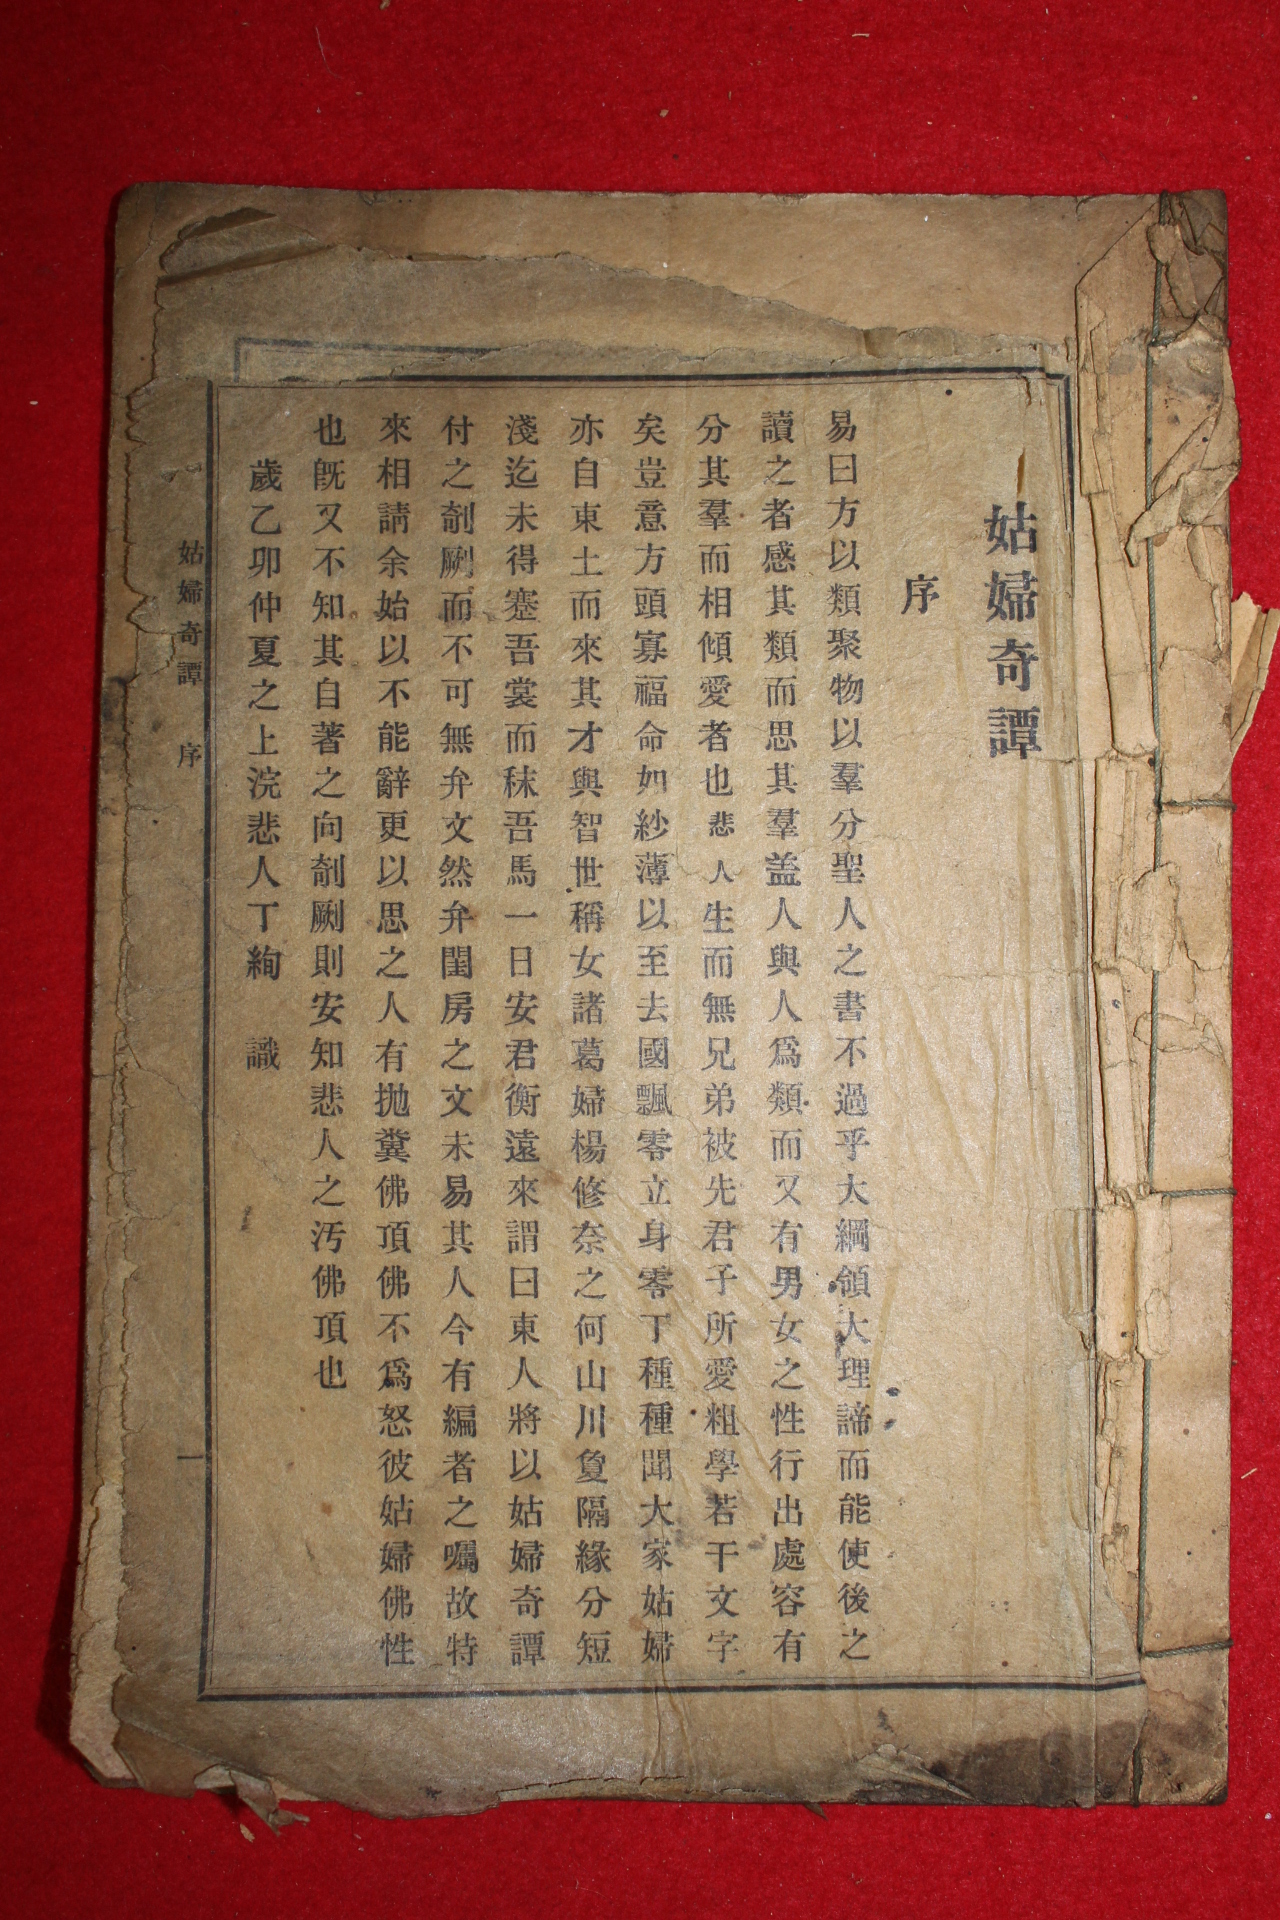 姑婦奇譚
序
易曰方以類聚物以羣分聖人之書不過乎大綱領大理諦而能使後之
讀之者感其類而思其羣盖人與人爲類而又有男女之性行出處容有
分其羣而相傾愛者也悲人生而無兄弟被先君子所愛粗學若干文字
矣豈意方頭寡福命如紗薄以至去國飄零立身零丁種種聞大家姑婦
亦自東土而來其才與智世稱女諸葛婦楊修奈之何山川敻隔緣分短
淺迄未得蹇吾裳而秣吾馬一日安君衡遠來謂曰東人將以姑婦奇譚
付之剞劂而不可無弁文然弁閨房之文未易其人今有編者之囑故特
來相請余始以不能辭更以思之人有抛糞佛頂佛不爲怒彼姑婦佛性
也旣又不知其自著之向剞劂則安知悲人之汚佛頂也
歲乙卯仲夏之上浣悲人丁絢 識
姑婦奇譚 序 一